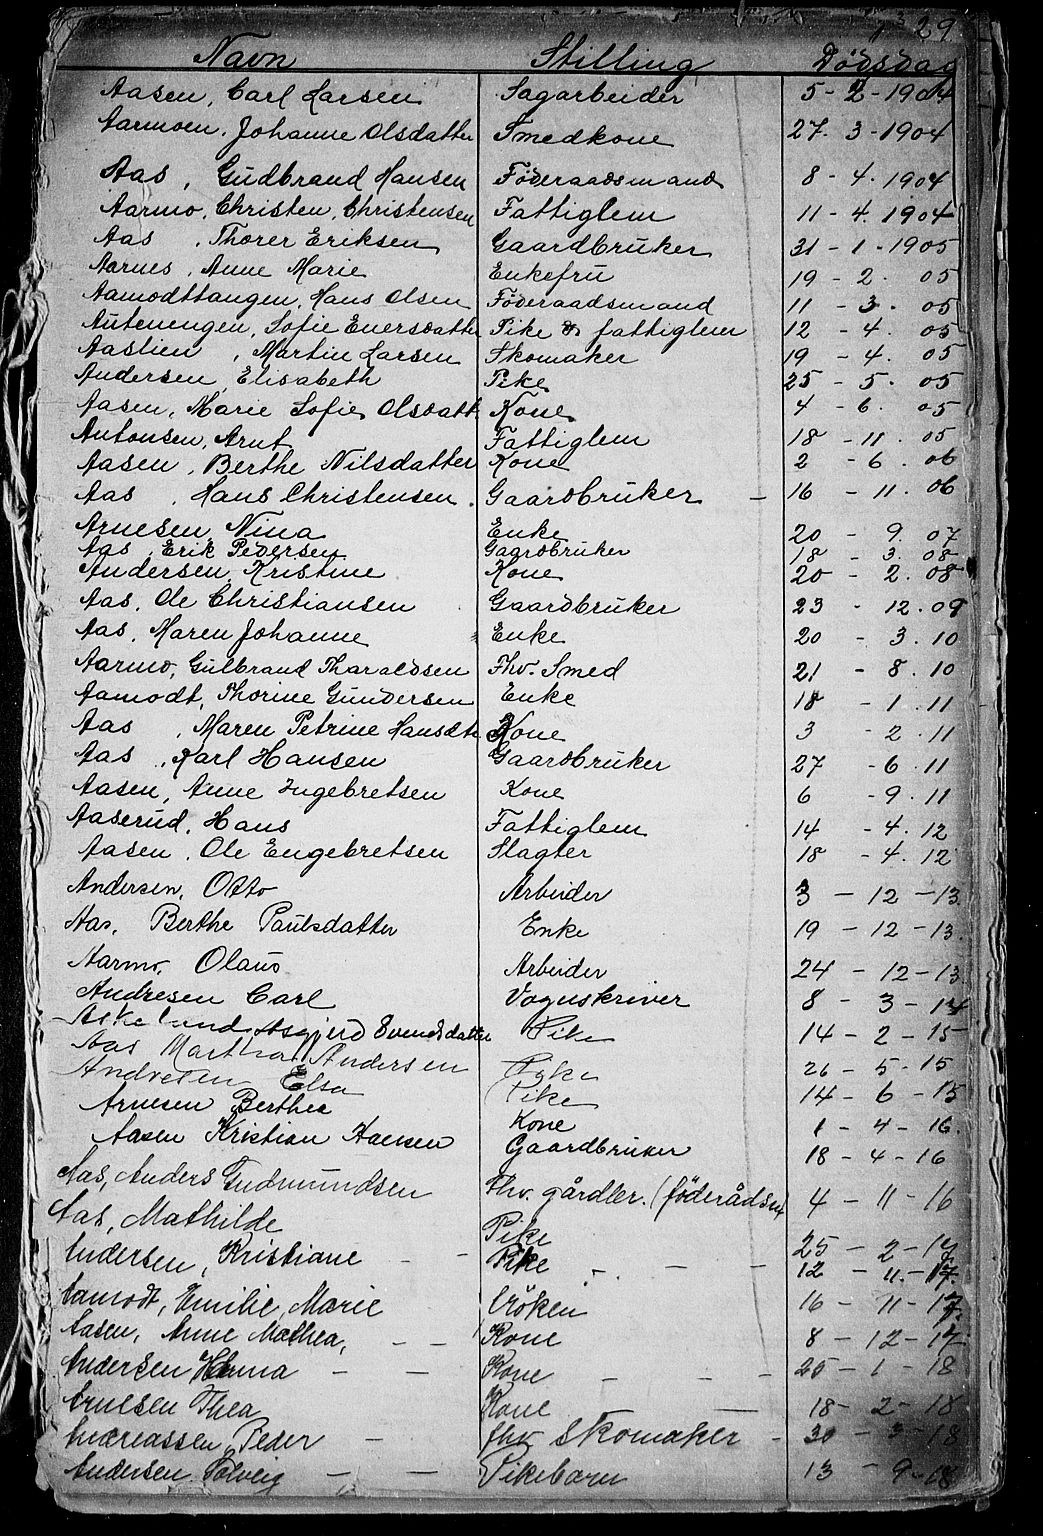 29
Navn Stilling Dødsdag
Aasen, Carl Larsen Sagarbeider 5 - 2 - 1904
Aarmoen, Johanne Olsdatter Smedkone 27. 3 - 1904
Aas, Gudbrand Hansen Føderaadsmand 8 - 4. 1904
Aarmo, Christen, Christensen Fattiglem 11 - 4. 1904
Aas, Thorer Eriksen Gaardbruker 31 - 1 - 1905
Aarnes, Anne Marie Enkefru 19 - 2. 05
Aamodttangen, Hans Olsen Føderaadsmand 11 - 3. 05
Autenengen, Sofie Enersdatter Pike & fattiglem 12 - 4. 05
Aaslien, Martin Larsen Skomaker 19 - 4. 05
Andersen, Elisabeth Pike 25 - 5. 05
Aasen, Marie Sofie Olsdatt Kone 4 - 6. 05
Antonsen, Arnt Fattiglem 18 - 11. 05
Aasen, Berthe Nilsdatter Kone 2 - 6. 06
Aas, Hans Christensen. Gaardbruker - 16 - 11. 06
Arnesen, Nina Enke 20 - 9. 07
Aas, Erik Pedersen Gaardbruker 18 - 3. 08
Andersen, Kristine Kone 20 - 2. 08
Aas, Ole Christiansen Gaardbruker 23 - 12. 09
Aas, Maren Johanne Enke 20 - 3. 10
Aarmo, Gulbrand Tharaldsen Fhv. Smed 21 - 8. 10
Aamodt, Thorine Gundersen Enke 18 - 1. 11
Aas, Maren Petrine Hansdtr Kone 3 - 2. 11
Aas, Karl Hansen Gaardbruker 27 - 6. 11
Aasen, Anne Ingebretsen Kone 6 - 9. 11
Aaserud, Hans Fattiglem 14 - 4. 12
Aasen, Ole Engebretsen Slagter 18 - 4. 12
Andersen, Otto Arbeider 3 - 12 - 13
Aas, Berthe Paulsdatter Enke 19 - 12 - 13.
Aarmo, Olaus Arbeider 24 - 12 - 13
Andresen Carl Vognskriver 8 - 3 - 14
Askelund Asgjerd Evensdatter Pike 14 - 2 - 15
Aas Martha Andersen 26 - 5 - 15
Andresen Elsa Pike 14 - 6 - 15
Arnesen Berthe Kone 1 - 4 - 16.
Aasen Kristian Hansen Gaardbruker 18 - 4 - 16
Aas, Anders Gudmundsen Fhv. gårdbr. (föderådsm 4 - 11 - 16
Aas, Mathilde Pike 25 - 2 - 17
Andersen, Kristiane - - Pike - - - 12 - 11. - 17.
Aamodt, Emilie, Marie Fröken 16 - 11 - 17.
Aasen, Anne Mathea, - - Kone 8 - 12 - 17
Andersen Hanna - - Kone - - - 25 - 1 - 18
Arnesen Thea Kone - 18 - 2 - 18
Andreassen, Peder - fhv Skomaker - 30 - 3 - 18
Andersen Solveig - - Pikebarn 13 - 9 - 18